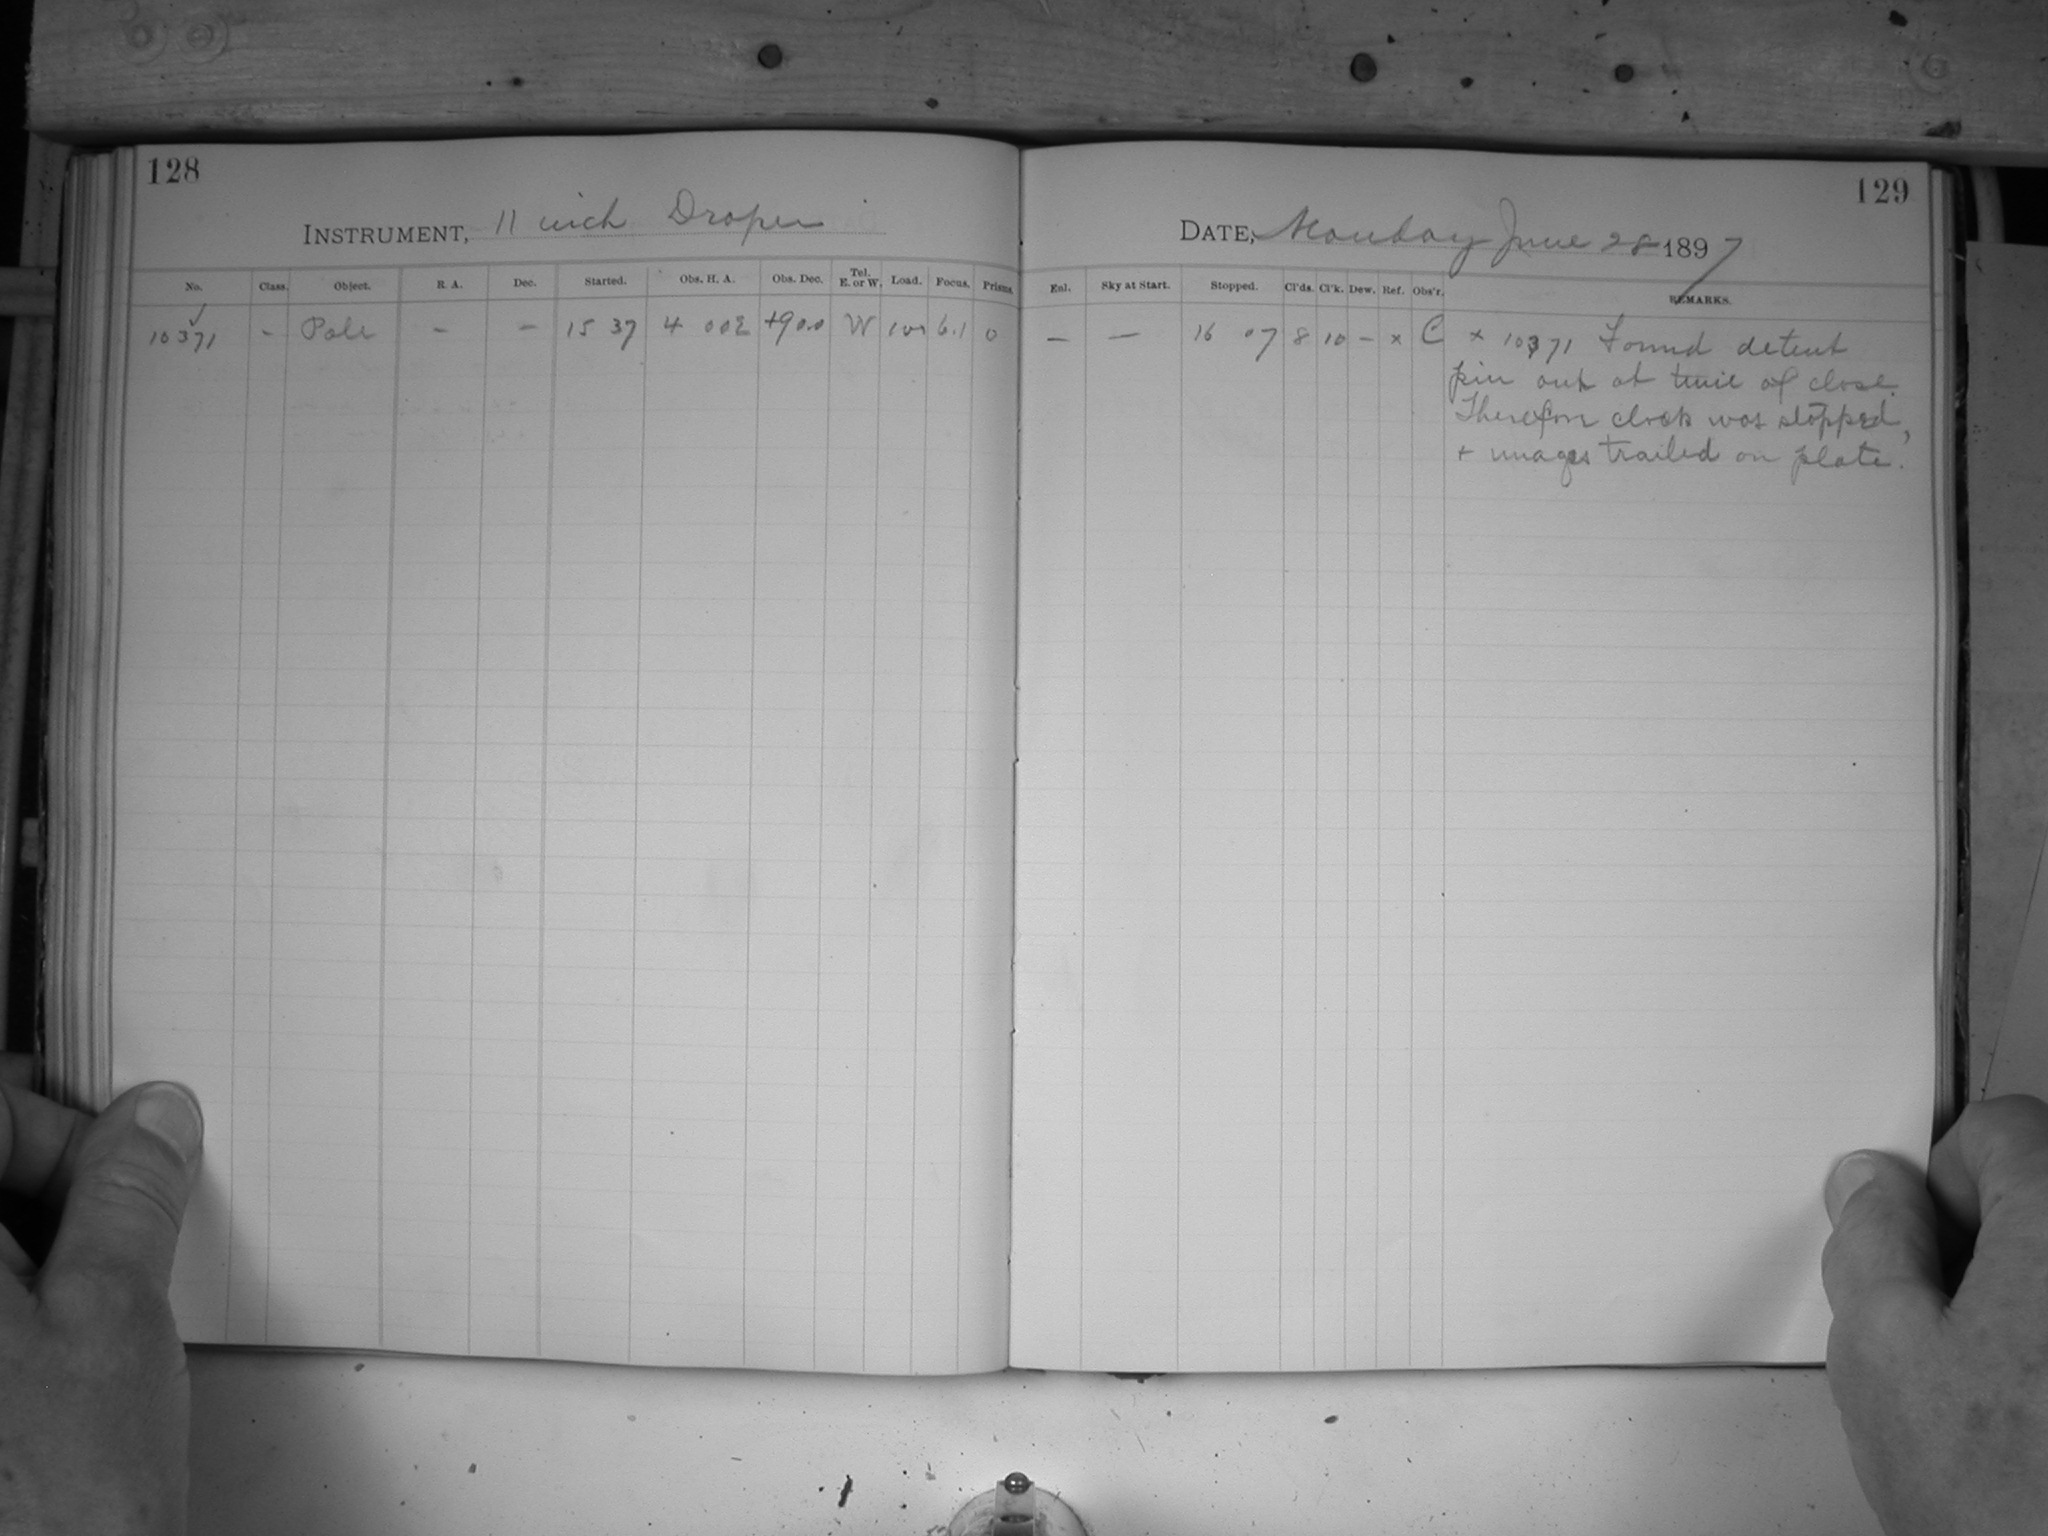 128
INSTRUMENT, 11 inch Draper
No. Class. Object. R. A. Dec. Started. Obs. H. A. Obs. Dec. Tel. E. or W. Load. Focus. Prisms.
✓
10371 - Pole - - 15 37 4 00E +90.0 W 6.1 0
129
DATE, Monday June 28 1897
Enl. Sky at Start. Stopped. Cl'ds. Cl'k. Dew. Ref. Obs'r. REMARKS.
— — 16 07 8 10 - x C x 10371 Found detent
pin out at time of close.
Therefore clock was stopped,
+ images trailed on plate.